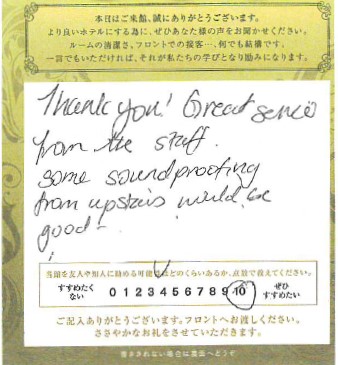 本日はご来館、誠にありがとうございます。
より良いホテルにする為に、ぜひあなた様の声をお聞かせください。
ルームの清潔さ、フロントでの接客…何でも結構です。
一言でもいただければ、それが私たちの学びとなり励みになります。
Thank you! Great service
from the staff.
some soundproofing
from upstairs would be
good-
当館を友人や知人に勧める可能性はどのくらいあるか、点数で教えてください。
すすめたくない 0 1 2 3 4 5 6 7 8 9 10 ぜひすすめたい
ご記入ありがとうございます。フロントへお渡しください。
ささやかなお礼をさせていただきます。